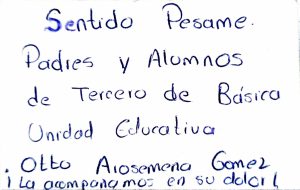 Sentido Pesame.
Padres y Alumnos
de Tercero de Básica
Unidad Educativa
. Otto Arosemena Gomez
¡ La acompañamos en su dolor ¡